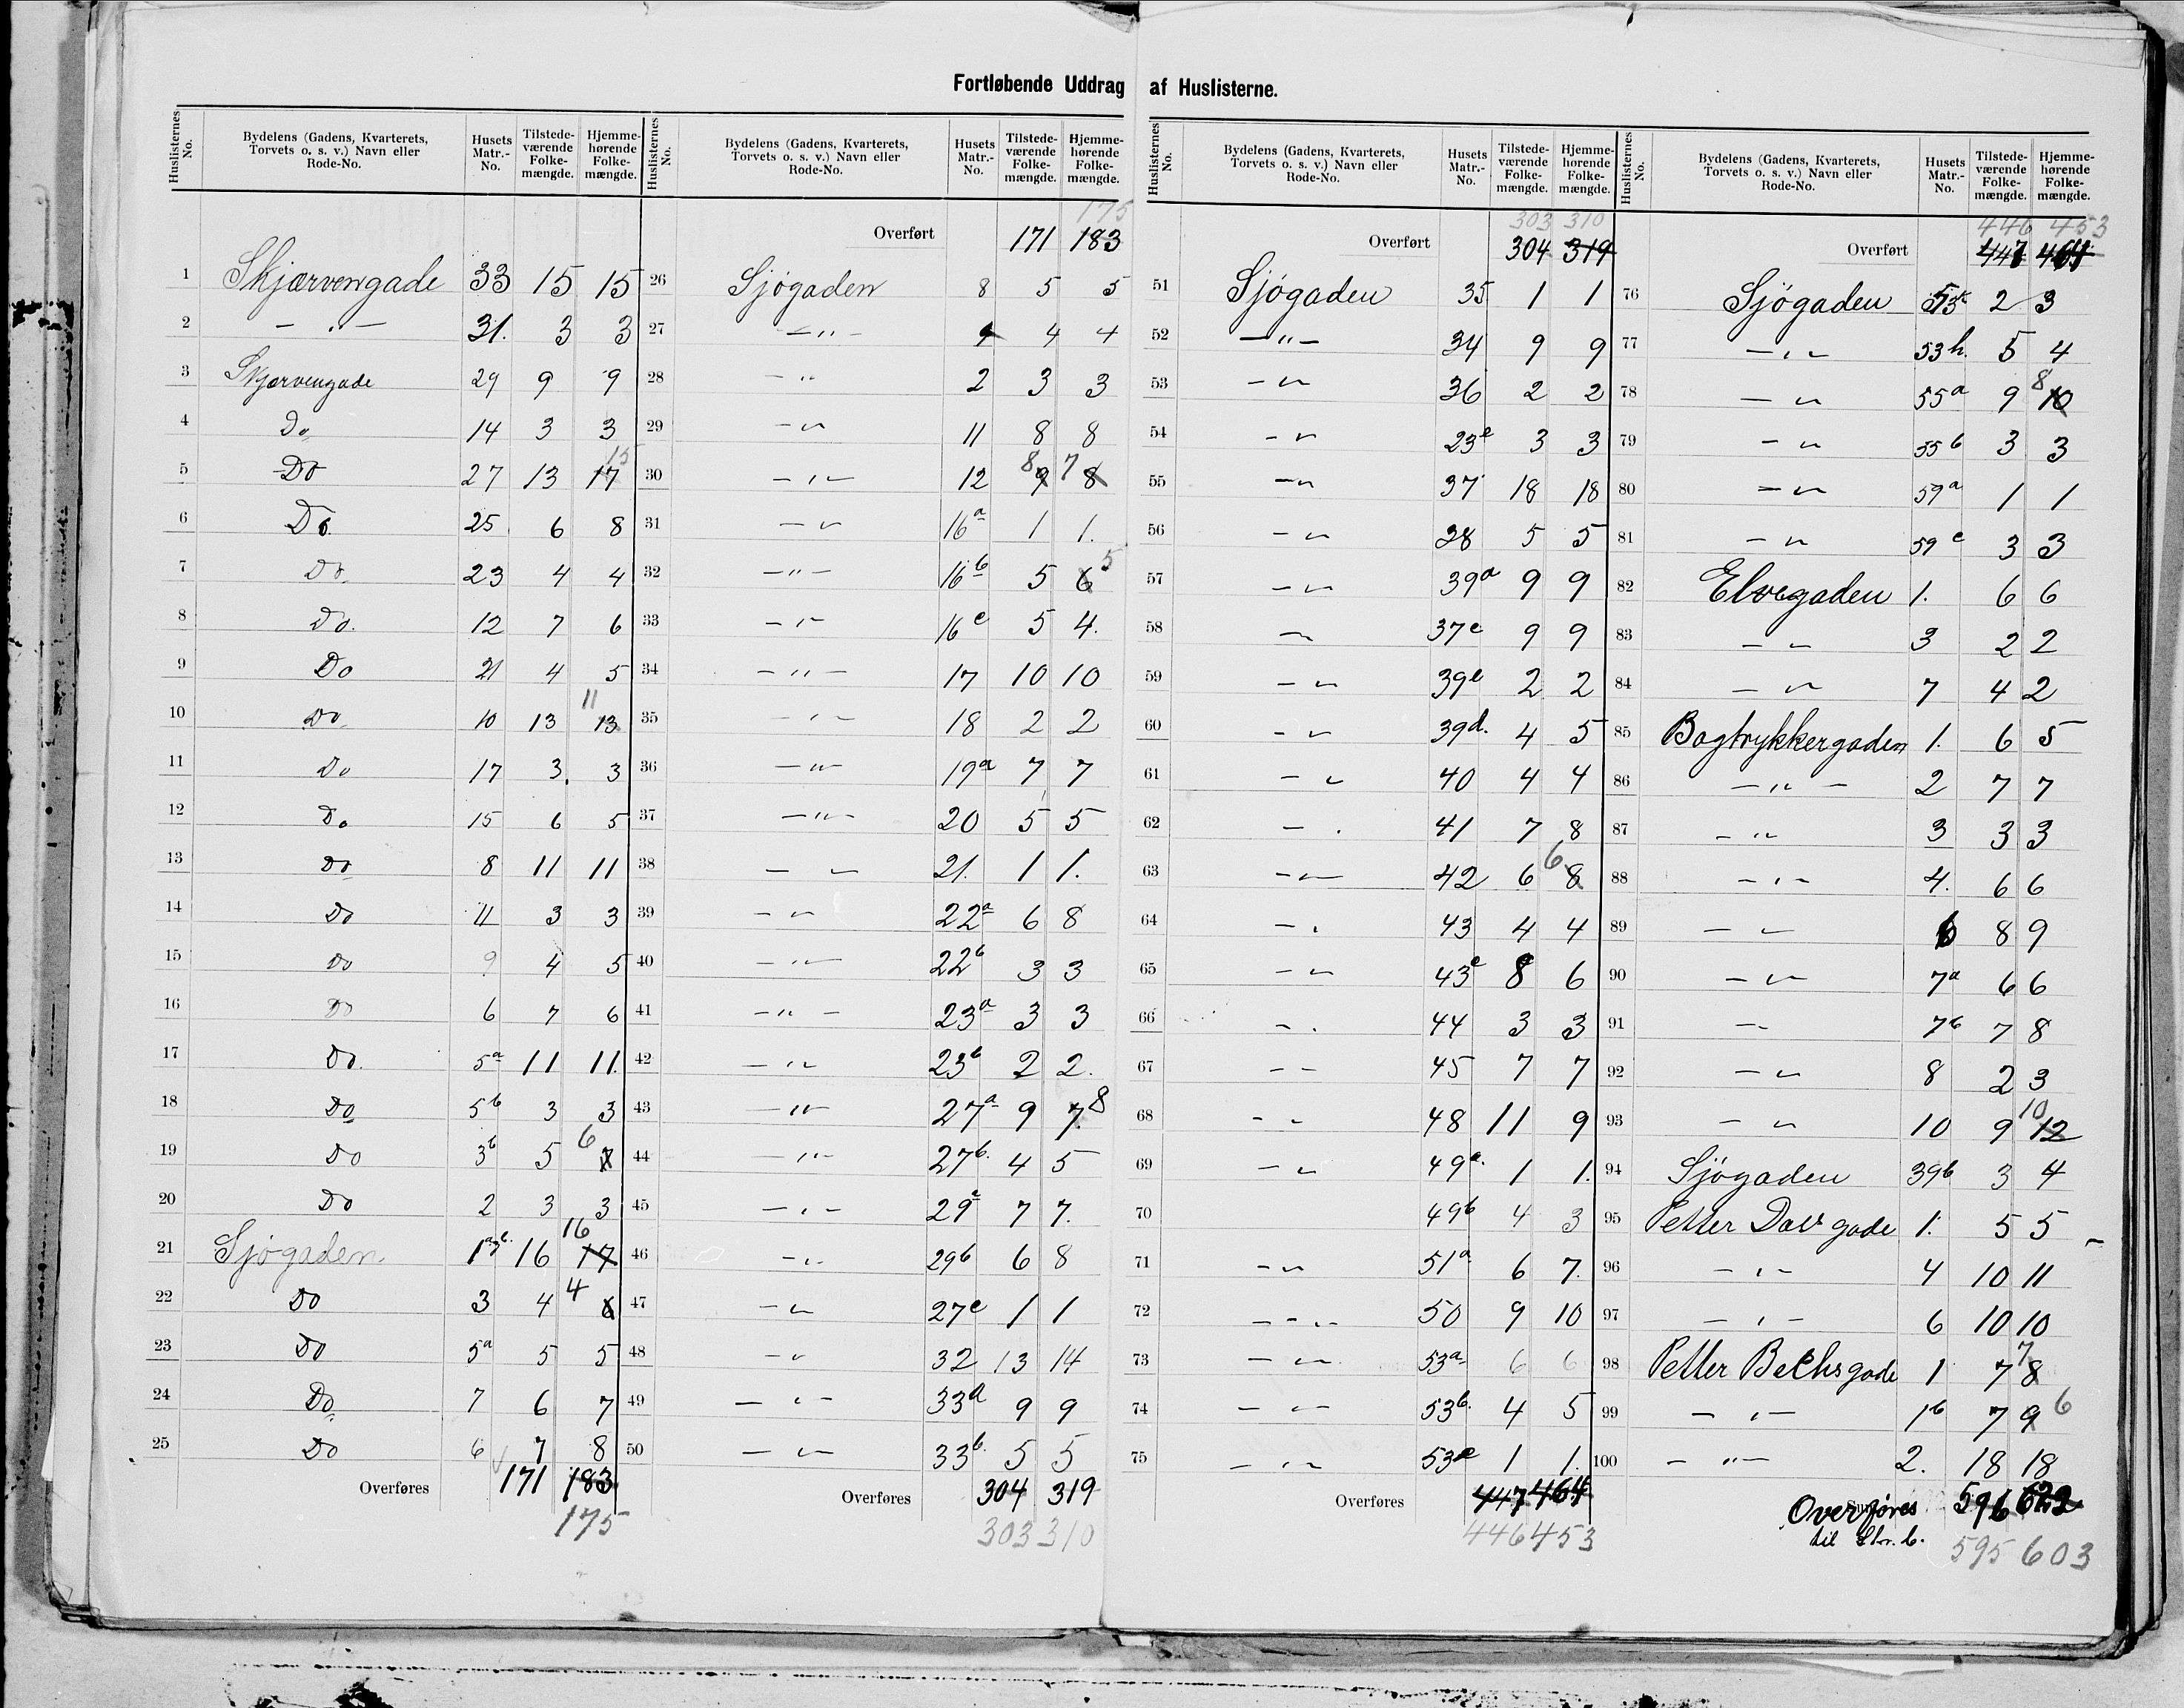 Fortløbende Uddrag af Huslisterne.
Huslisternes No. Bydelens (Gadens, Kvarterets, Torvets o. s. v.) Navn eller Rode-No. Husets Matr.-No. Tilstedeværende Folkemængde. Hjemmehørende Folkemængde.
1 Skjærvengade 33 15 15
2 - " - 31. 3 3
3 Skjærvengade 29 9 9
4 Do 14 3 3
5 Do 27 13 17 15
6 Do. 25 6 8
7 Do. 23 4 4
8 Do. 12 7 6
9 Do 21 4 5
10 Do 10 13 13 11
11 Do 17 3. 3
12 Do 15 6 5
13 Do 8 11 11
14 Do 11 3 3
15 Do 9 4 5
16 Do 6 7 6
17 Do. 5a 11 11.
18 Do 5b 3 3
19 Do 3b 5 7 6
20 Do 2 3 3
21 Sjøgaden. 16 17 16
22 Do 3 4 6 4
23 Do 5a 5 5
24 Do 7 6 7
25 Do 6 7 8
Overføres 171 183
175
Huslisternes No. Bydelens (Gadens, Kvarterets, Torvets o. s. v.) Navn eller Rode-No. Husets Matr.-No. Tilstedeværende Folkemængde. Hjemmehørende Folkemængde.
175
Overført 171 183
26 Sjøgaden 8 5 5
27 - " - 4 4
28 - " 2 3 3
29 - " 11 8 8
30 - " - 12 9 8 8 7
31 - " 16a 1 1.
32 - " - 16b 5 6 5
33 - " - 16c 5 4.
34 - " - 17 10 10
35 - " - 18 2 2
36 - " - 19a 7 7
37 - " - 20 5 5
38 - " 21. 1 1.
39 - " 22a 6 8
40 - " - 22b 3 3
41 - " - 23a 3 3
42 - " - 23b 2 2.
43 - " - 27a 9 7. 8
44 - " - 27b. 4 5
45 - " - 29a 7 7.
46 - " - 29b 6 8
47 - " 27c 1 1
48 - " 32 13 14
49 - " - 33a 9 9
50 - " 33b. 5 5
Overføres 304 319
303 310
Huslisternes No. Bydelens (Gadens, Kvarterets, Torvets o. s. v.) Navn eller Rode-No. Husets Matr.-No. Tilstedeværende Folkemængde. Hjemmehørende Folkemængde.
303 310
Overført 304 319
51 Sjøgaden 35 1 1
52 - " - 34 9 9
53 - " 36 2 2
54 - " 23e 3 3
55 - " 37 18 18
56 - " 38 5 5
57 - " 39a 9 9
58 - " 37c 9 9
59 - " 39e 2 2
60 - " 39d. 4 5
61 - " 40 4 4
62 - . 41 7 8
63 - " 42 6 8 6
64 - . 43 4 4
65 - " 43e 8 6
66 - . 44 3 3
67 - - 45 7 7
68 - " 48 11 9
69 - " 49a. 1 1.
70 49b 4 3
71 - " 51a 6 7.
72 - " - 50 9 10
73 - " 53a 6 6
74 - " 53b. 4 5
75 - " - 53e 1 1.
Overføres 447 464
446 453
Huslisternes No. Bydelens (Gadens, Kvarterets, Torvets o. s. v.) Navn eller Rode-No. Husets Matr.-No. Tilstedeværende Folkemængde. Hjemmehørende Folkemængde.
446 453
Overført 447 464
76 Sjøgaden 2 3
77 - " - 53h. 5 4
78 - " 55a 9 10 8
79 - " 55b 3 3
80 - " 59a 1 1
81 - " 59c 3 3
82 Elvegaden 1. 6 6
83 - " 3 2 2
84 - " 7 4 2
85 Bogtrykkergaden 1. 6 5
86 - " - 2 7 7
87 - " 3 3 3
88 - " - 4. 6 6
89 - " 6 8 9
90 - " 7a 6 6
91 - " 7b 7 8
92 - " 8 2 3
93 - " 10 9 12 10
94 Sjøgaden 39b 3 4
95 Petter Dass gade 1. 5 5
96 - " - 4 10 11
97 - " - 6 10 10
98 Petter Bechs gade 1 7 8 7
99 - " - 1b 7 9 6
100 - " - 2. 18 18
Overføres til 596 622
595 603